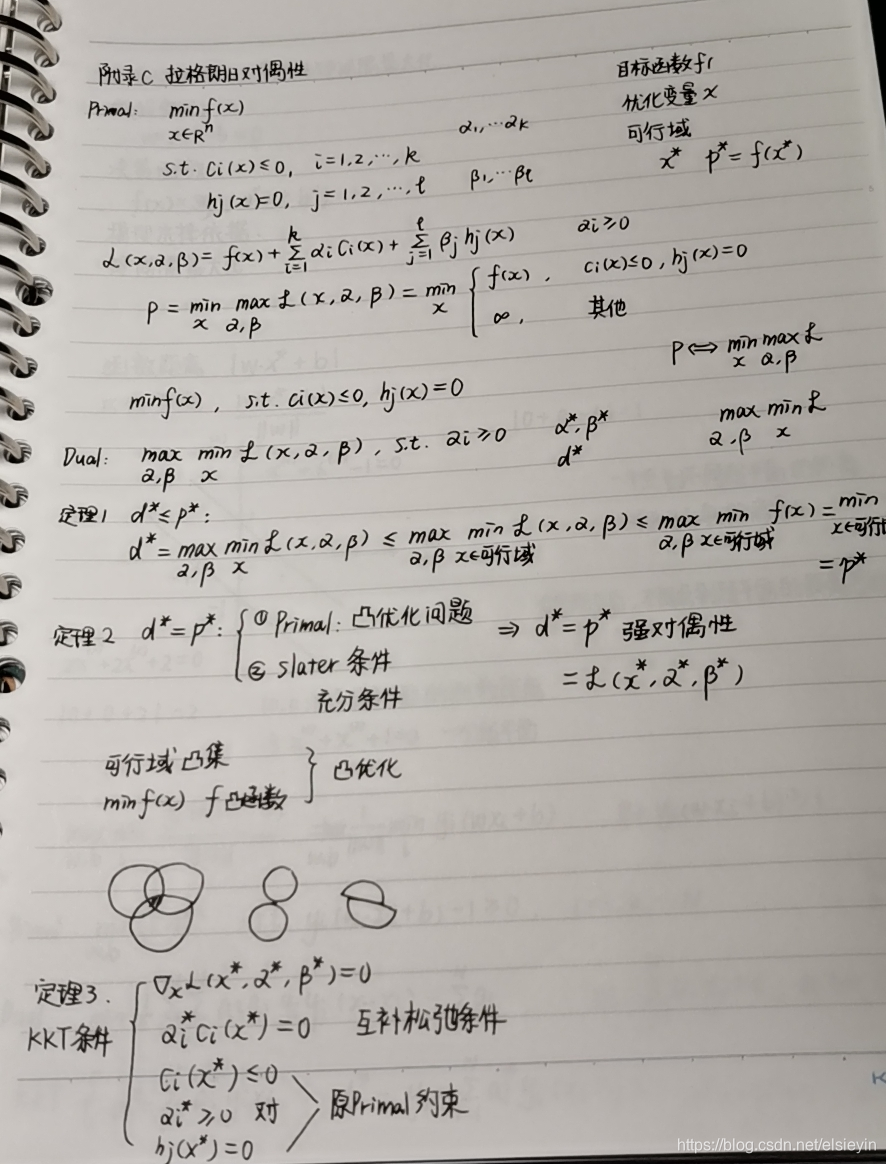 附录C 拉格朗日对偶性
目标函数f(
Primal: min f(x)
x∈Rⁿ
优化变量 x
α₁,…αk
可行域
s.t. Ci(x)≤0, i=1,2,…,k
x* p*=f(x*)
hj(x)=0, j=1,2,…,ℓ β₁,…βℓ
L(x,α,β)= f(x)+ Σ_{i=1}^{k} αiCi(x)+ Σ_{j=1}^{ℓ} βjhj(x) αi≥0
P = min_x max_{α,β} L(x,α,β) = min_x { f(x), Ci(x)≤0, hj(x)=0
∞, 其他
P⟺ min_x max_{α,β} L
minf(x), s.t. Ci(x)≤0, hj(x)=0
Dual: max_{α,β} min_x L(x,α,β), s.t. αi≥0 α*,β* max_{α,β} min_x L
d*
定理1 d*≤p*:
d*= max_{α,β} min_x L(x,α,β) ≤ max_{α,β} min_{x∈可行域} L(x,α,β) ≤ max_{α,β} min_{x∈可行域} f(x) = min_{x∈可行域}
= p*
定理2 d*=p*: { ① Primal: 凸优化问题 ⇒ d*=p* 强对偶性
② slater 条件 = L(x*,α*,β*)
充分条件
可行域 凸集 } 凸优化
min f(x) f凸函数
定理3. { ∇xL(x*,α*,β*)=0
KKT条件 αi*Ci(x*)=0 互补松弛条件
Ci(x*)≤0
αi*≥0 对 原Primal约束
hj(x*)=0
https://blog.csdn.net/elsieyin